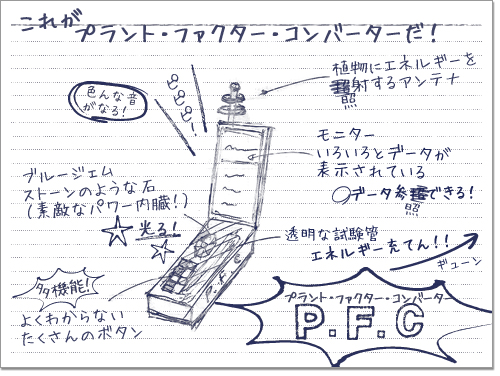 これが
プラント・ファクター・コンバーターだ!
色んな音
がなる!
ヨヨヨ!
植物にエネルギーを
照射するアンテナ
モニター
いろいろとデータが
表示されている
○データ参照できる!
ブルージェム
ストーンのような石
(素敵なパワー内臓!)
光る!
透明な試験管
エネルギー充てん!!
ギューン
多機能!
よくわからない
たくさんのボタン
P.F.C
プラント・ファクター・コンバーター
P.F.C